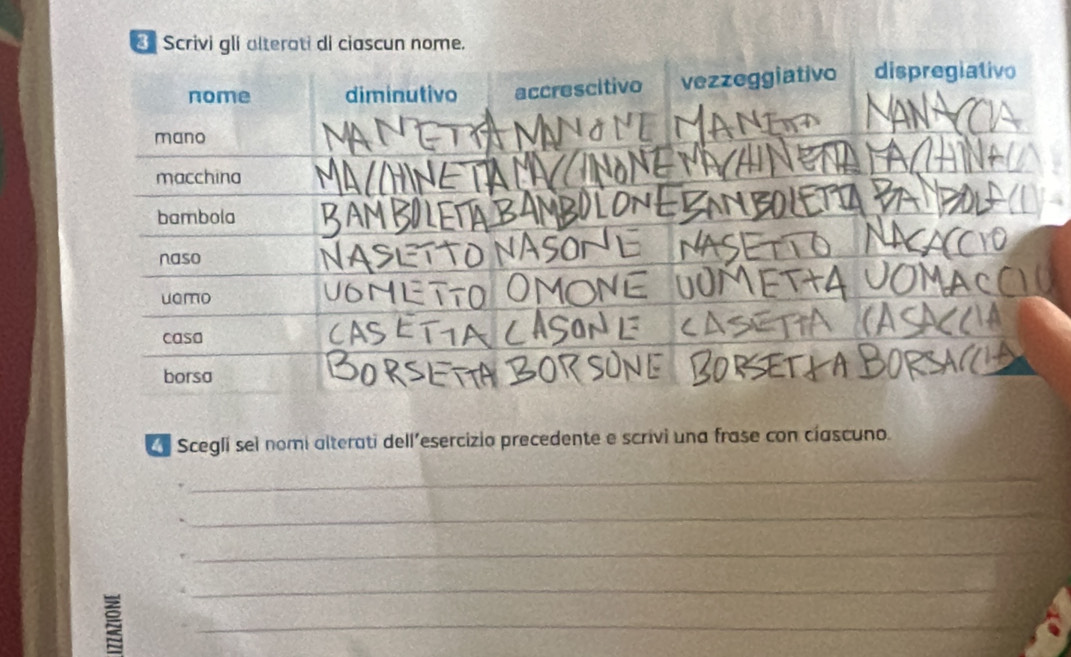 3 Scrivi gli alterati di ciascun nome.
nome diminutivo accrescitivo vezzeggiativo dispregiativo
mano MANETTA MANONE MANETTA NANACCIA
macchina MACCHINETTA MACCINONE MACCHINETTA
bambola BAMBOLETTA BAMBOLONE BANBOLETTA
naso NASETTO NASONE NASETTO NASACCIO
uomo UOMETTO OMONE UOMETTA UOMACCIO
casa CASETTA CASONE CASETTA CASACCIA
borsa BORSETTA BORSONE BORSETTA BORSACCIA
4 Scegli sei nomi alterati dell'esercizio precedente e scrivi una frase con ciascuno.
IZZAZIONE